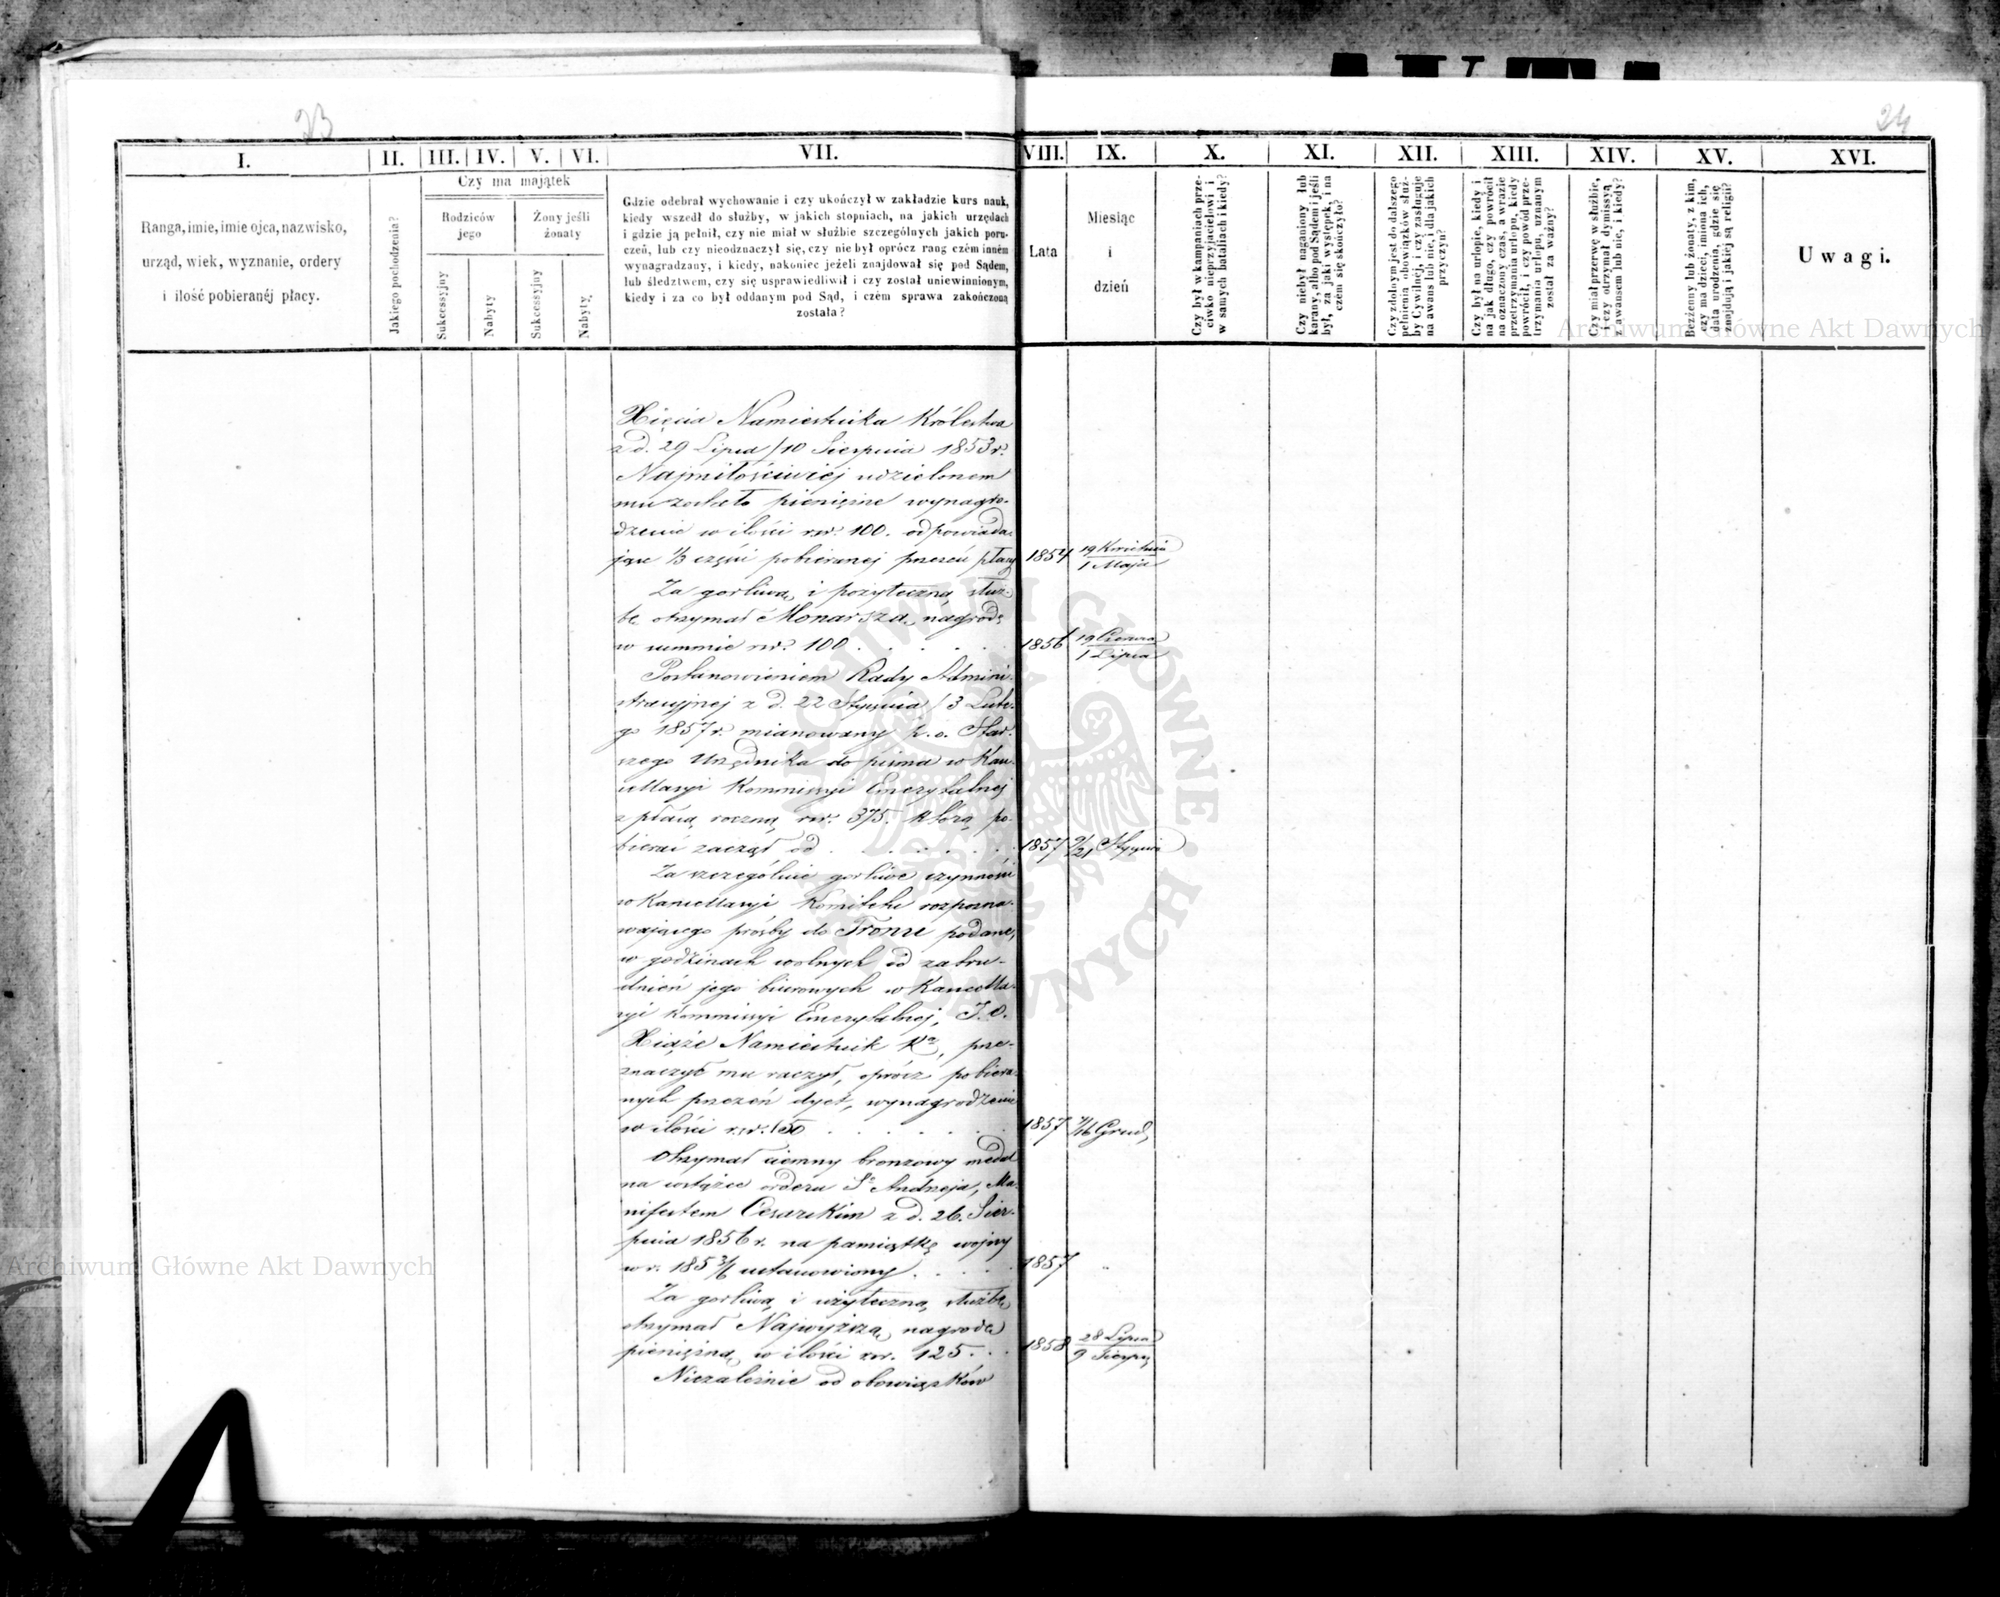 23
24
I.
II.
III.
IV.
V.
VI.
VII.
VIII.
IX.
X.
XI.
XII.
XIII.
XIV.
XV.
XVI.
Ranga, imie, imie ojca, nazwisko,
urząd, wiek, wyznanie, ordery
i ilość pobieranéj płacy.
Jakiego pochodzenia?
Czy ma majątek
Rodziców
jego
Żony jeśli
żonaty
Sukcessyjny
Nabyty
Sukcessyjny
Nabyty
Gdzie odebrał wychowanie i czy ukończył w zakładzie kurs nauk,
kiedy wszedł do służby, w jakich stopniach, na jakich urzędach
i gdzie ją pełnił, czy nie miał w służbie szczególnych jakich poru-
czeń, lub czy nieodznaczył się, czy nie był oprócz rang czém inném
wynagradzany, i kiedy, nakoniec jeżeli znajdował się pod Sądem,
lub śledztwem, czy się usprawiedliwił i czy został uniewinnionym,
kiedy i za co był oddanym pod Sąd, i czém sprawa zakończoną
została?
Lata
Miesiąc
i
dzień
Czy był w kampaniach prze-
ciwko nieprzyjacielowi i
w samych bataliach i kiedy?
Czy niebył naganiony lub
karany, albo pod Sądem i jeśli
był, za jaki występek, i na
czém się skończyło?
Czy zdolnym jest do dalszego
pełnienia obowiązków służ-
by Cywilnéj, i czy zasługuje
na awans lub nie, i dla jakich
przyczyn?
Czy był na urlopie, kiedy i
na jak długo, czy powrócił
na oznaczony czas, a w razie
przetrzymania urlopu, kiedy
powrócił, i czy powód prze-
trzymania urlopu, uznanym
został za ważny?
Czy miał przerwę w służbie,
i czy otrzymał dymissyą
z awansem lub nie, i kiedy?
Bezżenny, lub żonaty, z kim,
czy ma dzieci, imiona ich,
data urodzenia, gdzie się
znajdują i jakiéj są religii?
Uwagi.
Xięcia Namiestnika Królestwa
z d. 29 Lipca/10 Sierpnia 1853 r.
Najmiłościwiéj udzielonem
mu zostało pieniężne wynagro-
dzenie w ilości rsr. 100. odpowiada-
jące 1/3 części pobieranej przezeń płacy
1854
19 Kwietnia
1 Maja
Za gorliwą i pożyteczną służ-
bę otrzymał Monarszą nagrodę
w summie rsr. 100 . . . . . .
1856
19 Czerwca
1 Lipca
Postanowieniem Rady Admini-
stracyjnej z d. 22 Stycznia/3 Lute-
go 1857 r. mianowany p. o. Star-
szego Urzędnika do pisma w Kan-
cellaryi Kommissyi Emerytalnej
z płacą roczną rsr. 375. którą po-
bierać zaczął od . . . . . . .
1857
9/21 Stycznia
Za szczególnie gorliwe czynności
w Kancellaryi Komitetu rozpozna-
wającego prośby do Tronu podane,
w godzinach wolnych od zatru-
dnień jego biurowych w Kancella-
ryi Kommissyi Emerytalnej, J. O.
Xiąże Namiestnik Kr., prze-
znaczyć mu raczył, oprócz pobiera-
nych przezeń dyet, wynagrodzenie
w ilości rsr. 150 . . . . . . .
1857
4/16 Grud.
Otrzymał ciemny bronzowy medal
na wstążce orderu Sgo Andrzeja, Ma-
nifestem Cesarskim z d. 26. Sier-
pnia 1856 r. na pamiątkę wojny
w r. 1853/6 ustanowiony . . . .
1857
"
Za gorliwą i użyteczną służbę
otrzymał Najwyższą nagrodę
pieniężną w ilości rsr. 125 . . .
1858
28 Lipca
9 Sierp.
Niezależnie od obowiązków
Archiwum Główne Akt Dawnych
Archiwum Główne Akt Dawnych
ARCHIWUM GŁÓWNE AKT DAWNYCH